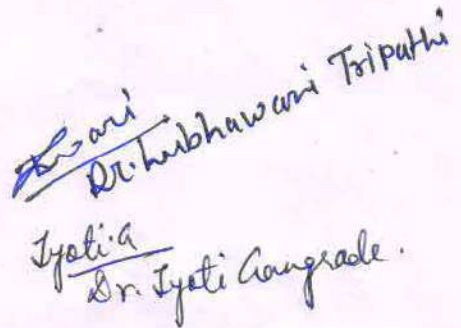 Dr. Lubhawani Tripathi
Jyoti.G
Dr. Jyoti Gangrade.